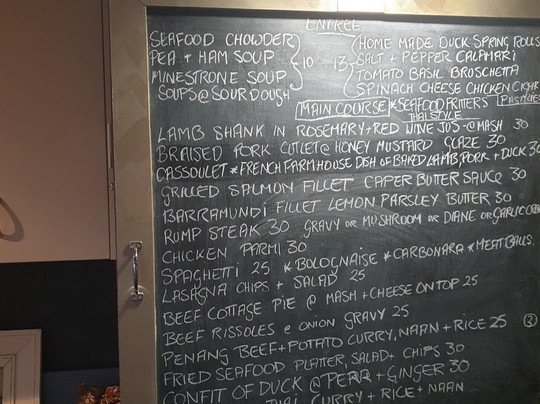 ENTREE
SEAFOOD CHOWDER
PEA + HAM SOUP
MINESTRONE SOUP
SOUPS @ SOUR DOUGH
10
13
HOME MADE DUCK SPRING ROLLS
SALT + PEPPER CALAMARI
TOMATO BASIL BRUSCHETTA
SPINACH CHEESE CHICKEN CIGAR
MAIN COURSE * SEAFOOD FRITTERS
THAI STYLE
LAMB SHANK IN ROSEMARY + RED WINE JUS @ MASH 30
BRAISED PORK CUTLET @ HONEY MUSTARD GLAZE 30
CASSOULET * FRENCH FARMHOUSE DISH OF BAKED LAMB, PORK + DUCK 30
GRILLED SALMON FILLET CAPER BUTTER SAUCE 30
BARRAMUNDI FILLET LEMON PARSLEY BUTTER 30
RUMP STEAK 30 GRAVY OR MUSHROOM OR DIANE OR GARLIC
CHICKEN PARMI 30
SPAGHETTI 25 * BOLOGNAISE * CARBONARA * MEATBALLS.
LASAGNA CHIPS + SALAD 25
BEEF COTTAGE PIE @ MASH + CHEESE ON TOP 25
BEEF RISSOLES @ ONION GRAVY 25
PENANG BEEF + POTATO CURRY, NAAN + RICE 25
FRIED SEAFOOD PLATTER, SALAD + CHIPS 30
CONFIT OF DUCK @ PEAR + GINGER 30
THAI CURRY + RICE + NAAN